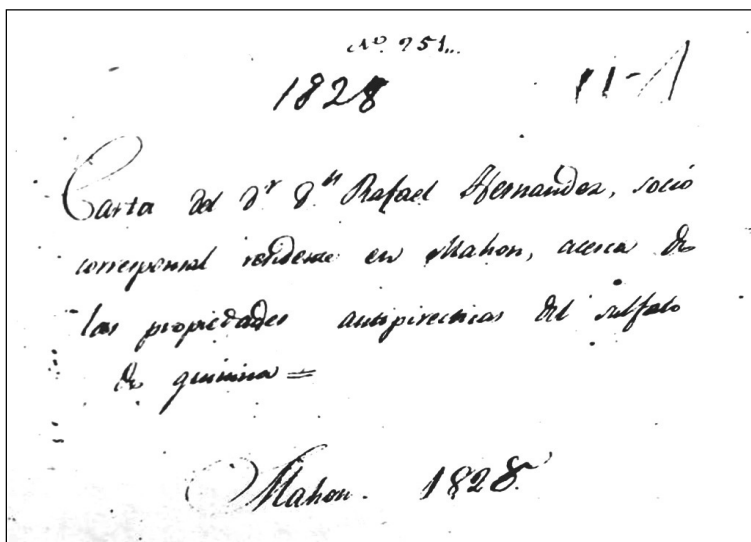 Nº 251..
1828 11-1
Carta del Dʳ Dⁿ Rafael Hernandez, socio
corresponsal residente en Mahon, acerca de
las propiedades antipirecticas del sulfato
de quinina =
Mahon. 1828.